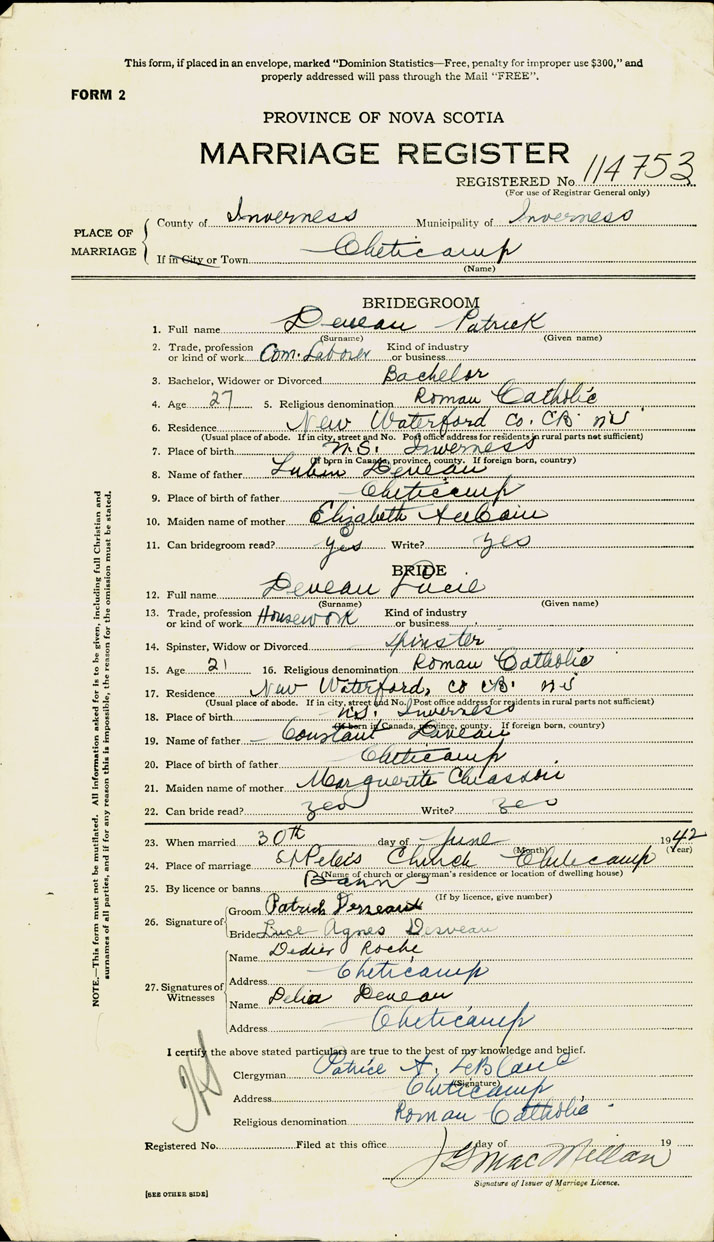 This form, if placed in an envelope, marked "Dominion Statistics—Free, penalty for improper use $300," and
properly addressed will pass through the Mail "FREE".
FORM 2
PROVINCE OF NOVA SCOTIA
MARRIAGE REGISTER
REGISTERED No. 114753
(For use of Registrar General only)
PLACE OF MARRIAGE
County of Inverness Municipality of Inverness
If in City or Town Cheticamp
(Name)
BRIDEGROOM
1. Full name Deveau Patrick
(Surname) (Given name)
2. Trade, profession or kind of work Com. Laborer Kind of industry or business
3. Bachelor, Widower or Divorced Bachelor
4. Age 27 5. Religious denomination Roman Catholic
6. Residence New Waterford Co. CB. NS
(Usual place of abode. If in city, street and No. Post office address for residents in rural parts not sufficient)
7. Place of birth N.S. Inverness
(If born in Canada, province, county. If foreign born, country)
8. Name of father Lubin Deveau
9. Place of birth of father Cheticamp
10. Maiden name of mother Elizabeth AuCoin
11. Can bridegroom read? yes Write? yes
BRIDE
12. Full name Deveau Lucie
(Surname) (Given name)
13. Trade, profession or kind of work Housework Kind of industry or business
14. Spinster, Widow or Divorced Spinster
15. Age 21 16. Religious denomination Roman Catholic
17. Residence New Waterford, Co CB. NS
(Usual place of abode. If in city, street and No. Post office address for residents in rural parts not sufficient)
18. Place of birth N.S. Inverness
(If born in Canada, province, county. If foreign born, country)
19. Name of father Constant Deveau
20. Place of birth of father Cheticamp
21. Maiden name of mother Marguerite Chiasson
22. Can bride read? yes Write? yes
23. When married 30th day of June 1942
(Month) (Year)
24. Place of marriage St Peter's Church Cheticamp
(Name of church or clergyman's residence or location of dwelling house)
25. By licence or banns Banns
(If by licence, give number)
26. Signature of
Groom Patrick Desveaux
Bride Luce Agnes Desveau
27. Signatures of Witnesses
Name Dedier Roche
Address Cheticamp
Name Delia Deveau
Address Cheticamp
I certify the above stated particulars are true to the best of my knowledge and belief.
Clergyman Patrice A. LeBlanc
(Signature)
Address Cheticamp
Religious denomination Roman Catholic
Registered No. Filed at this office day of 19
J G MacMillan
Signature of Issuer of Marriage Licence.
[SEE OTHER SIDE]
NOTE.—This form must not be mutilated. All information asked for is to be given, including full Christian and
surnames of all parties, and if for any reason this is impossible, the reason for the omission must be stated.